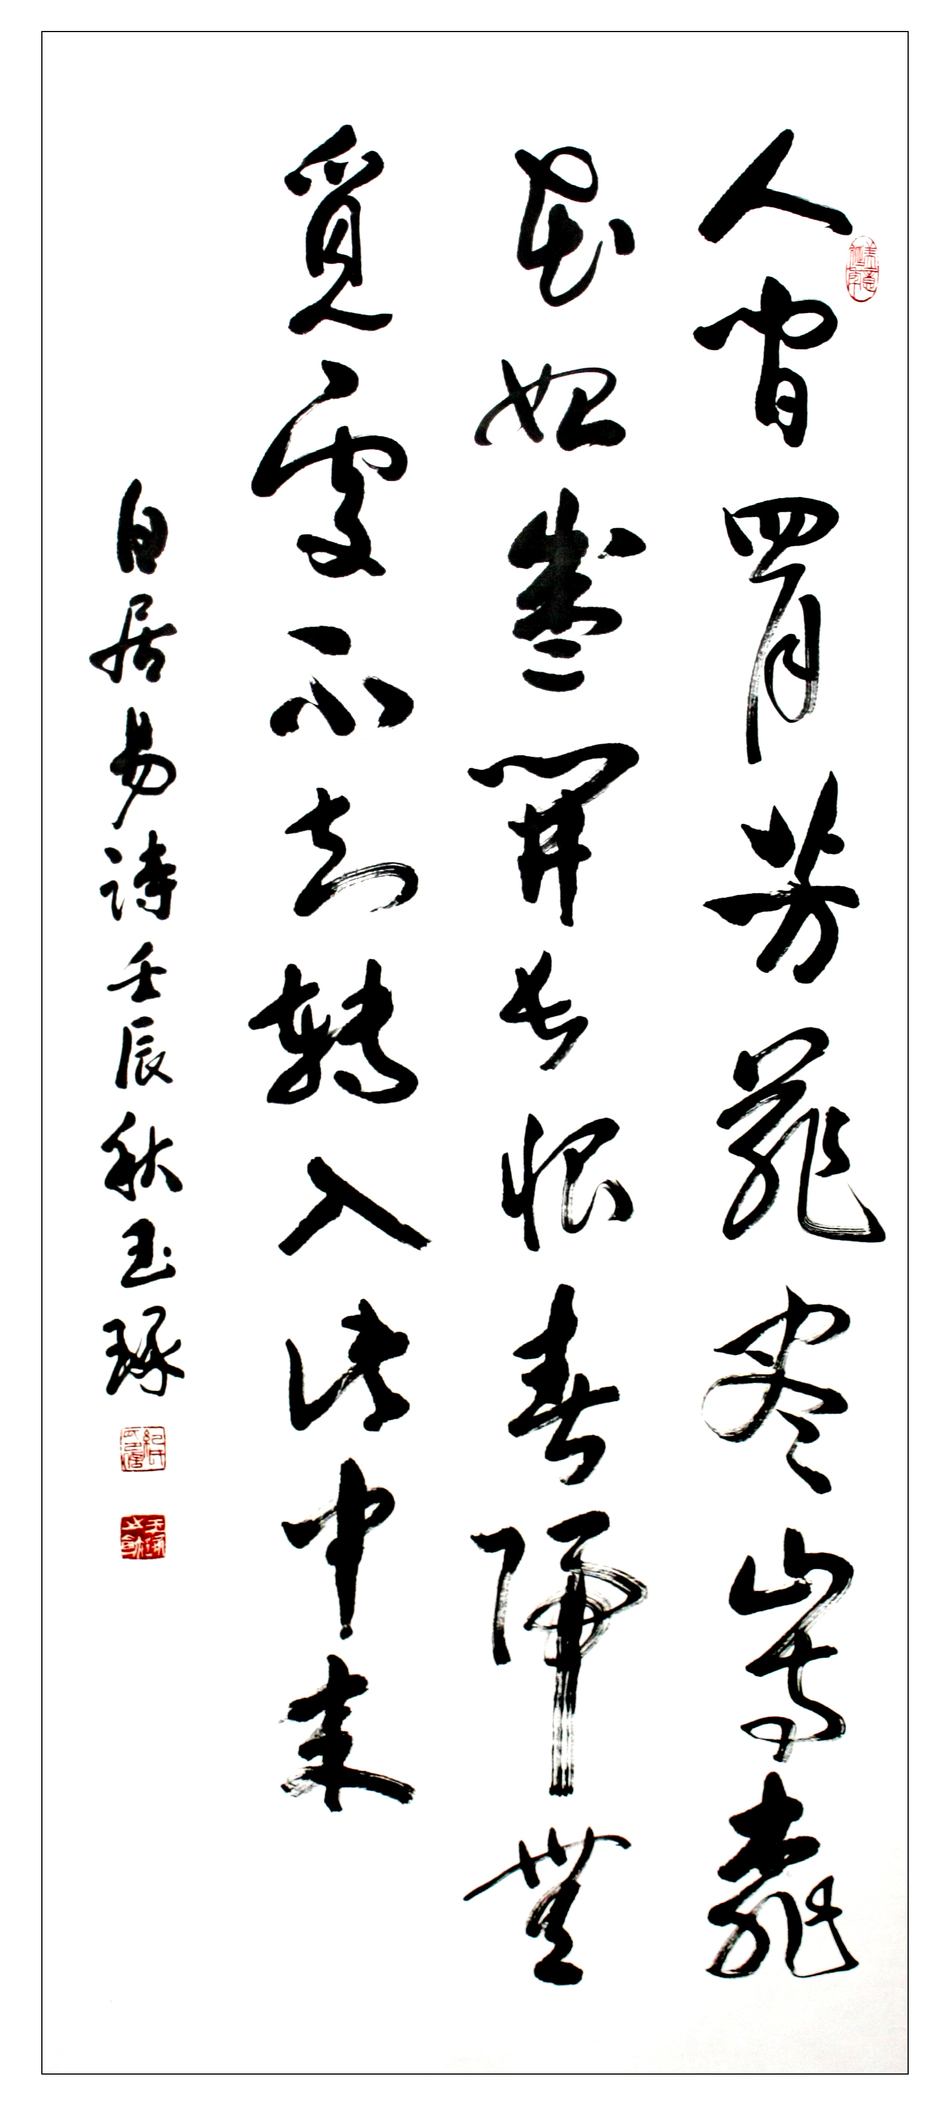 人間四月芳菲尽山寺桃
花始盛開長恨春歸無
覓處不知轉入此中来
白居易詩壬辰秋玉琢